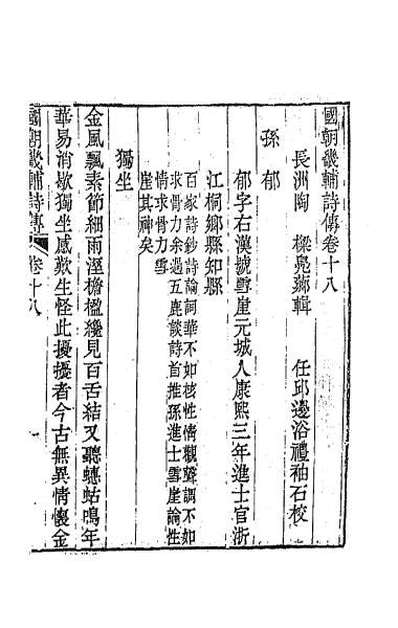 國朝畿輔詩傳卷十八
長洲陶 樑鳧薌輯 任邱邊浴禮袖石校
孫郁
郁字右漢號雪崖元城人康熙三年進士官浙
江桐鄉縣知縣
百家詩鈔詩論詞華不如核性情觀聲調不如
求骨力余過五鹿談詩首推孫進士雪崖論性
情求骨力雪
崖其神矣
獨坐
金風飄素節細雨溼檐楹纔見百舌結又聽蟪蛄鳴年
華易消歇獨坐感歎生怪此擾擾者今古無異情懷金
國朝畿輔詩傳 卷十八